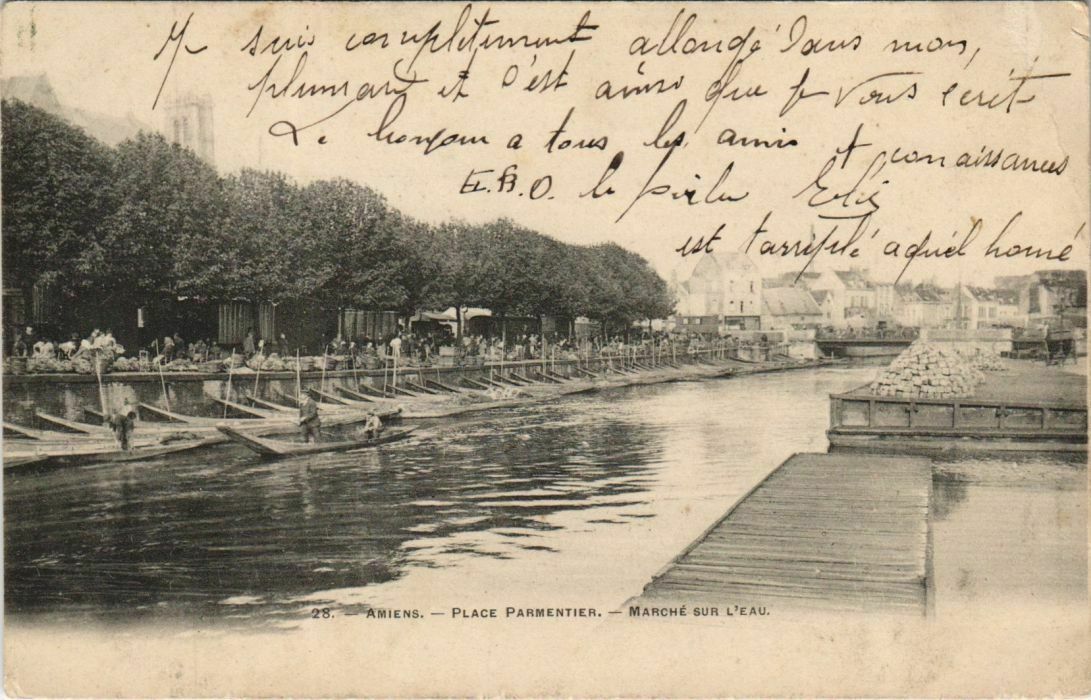 Je suis complettement allongé Dans mon,
plumard et C'est ainsi que je vous ecrit
Le bonjour a tous les amis et connaissances
E.B.O. le
est tarriplé aquél homé
28. — AMIENS. — PLACE PARMENTIER. — MARCHÉ SUR L'EAU.